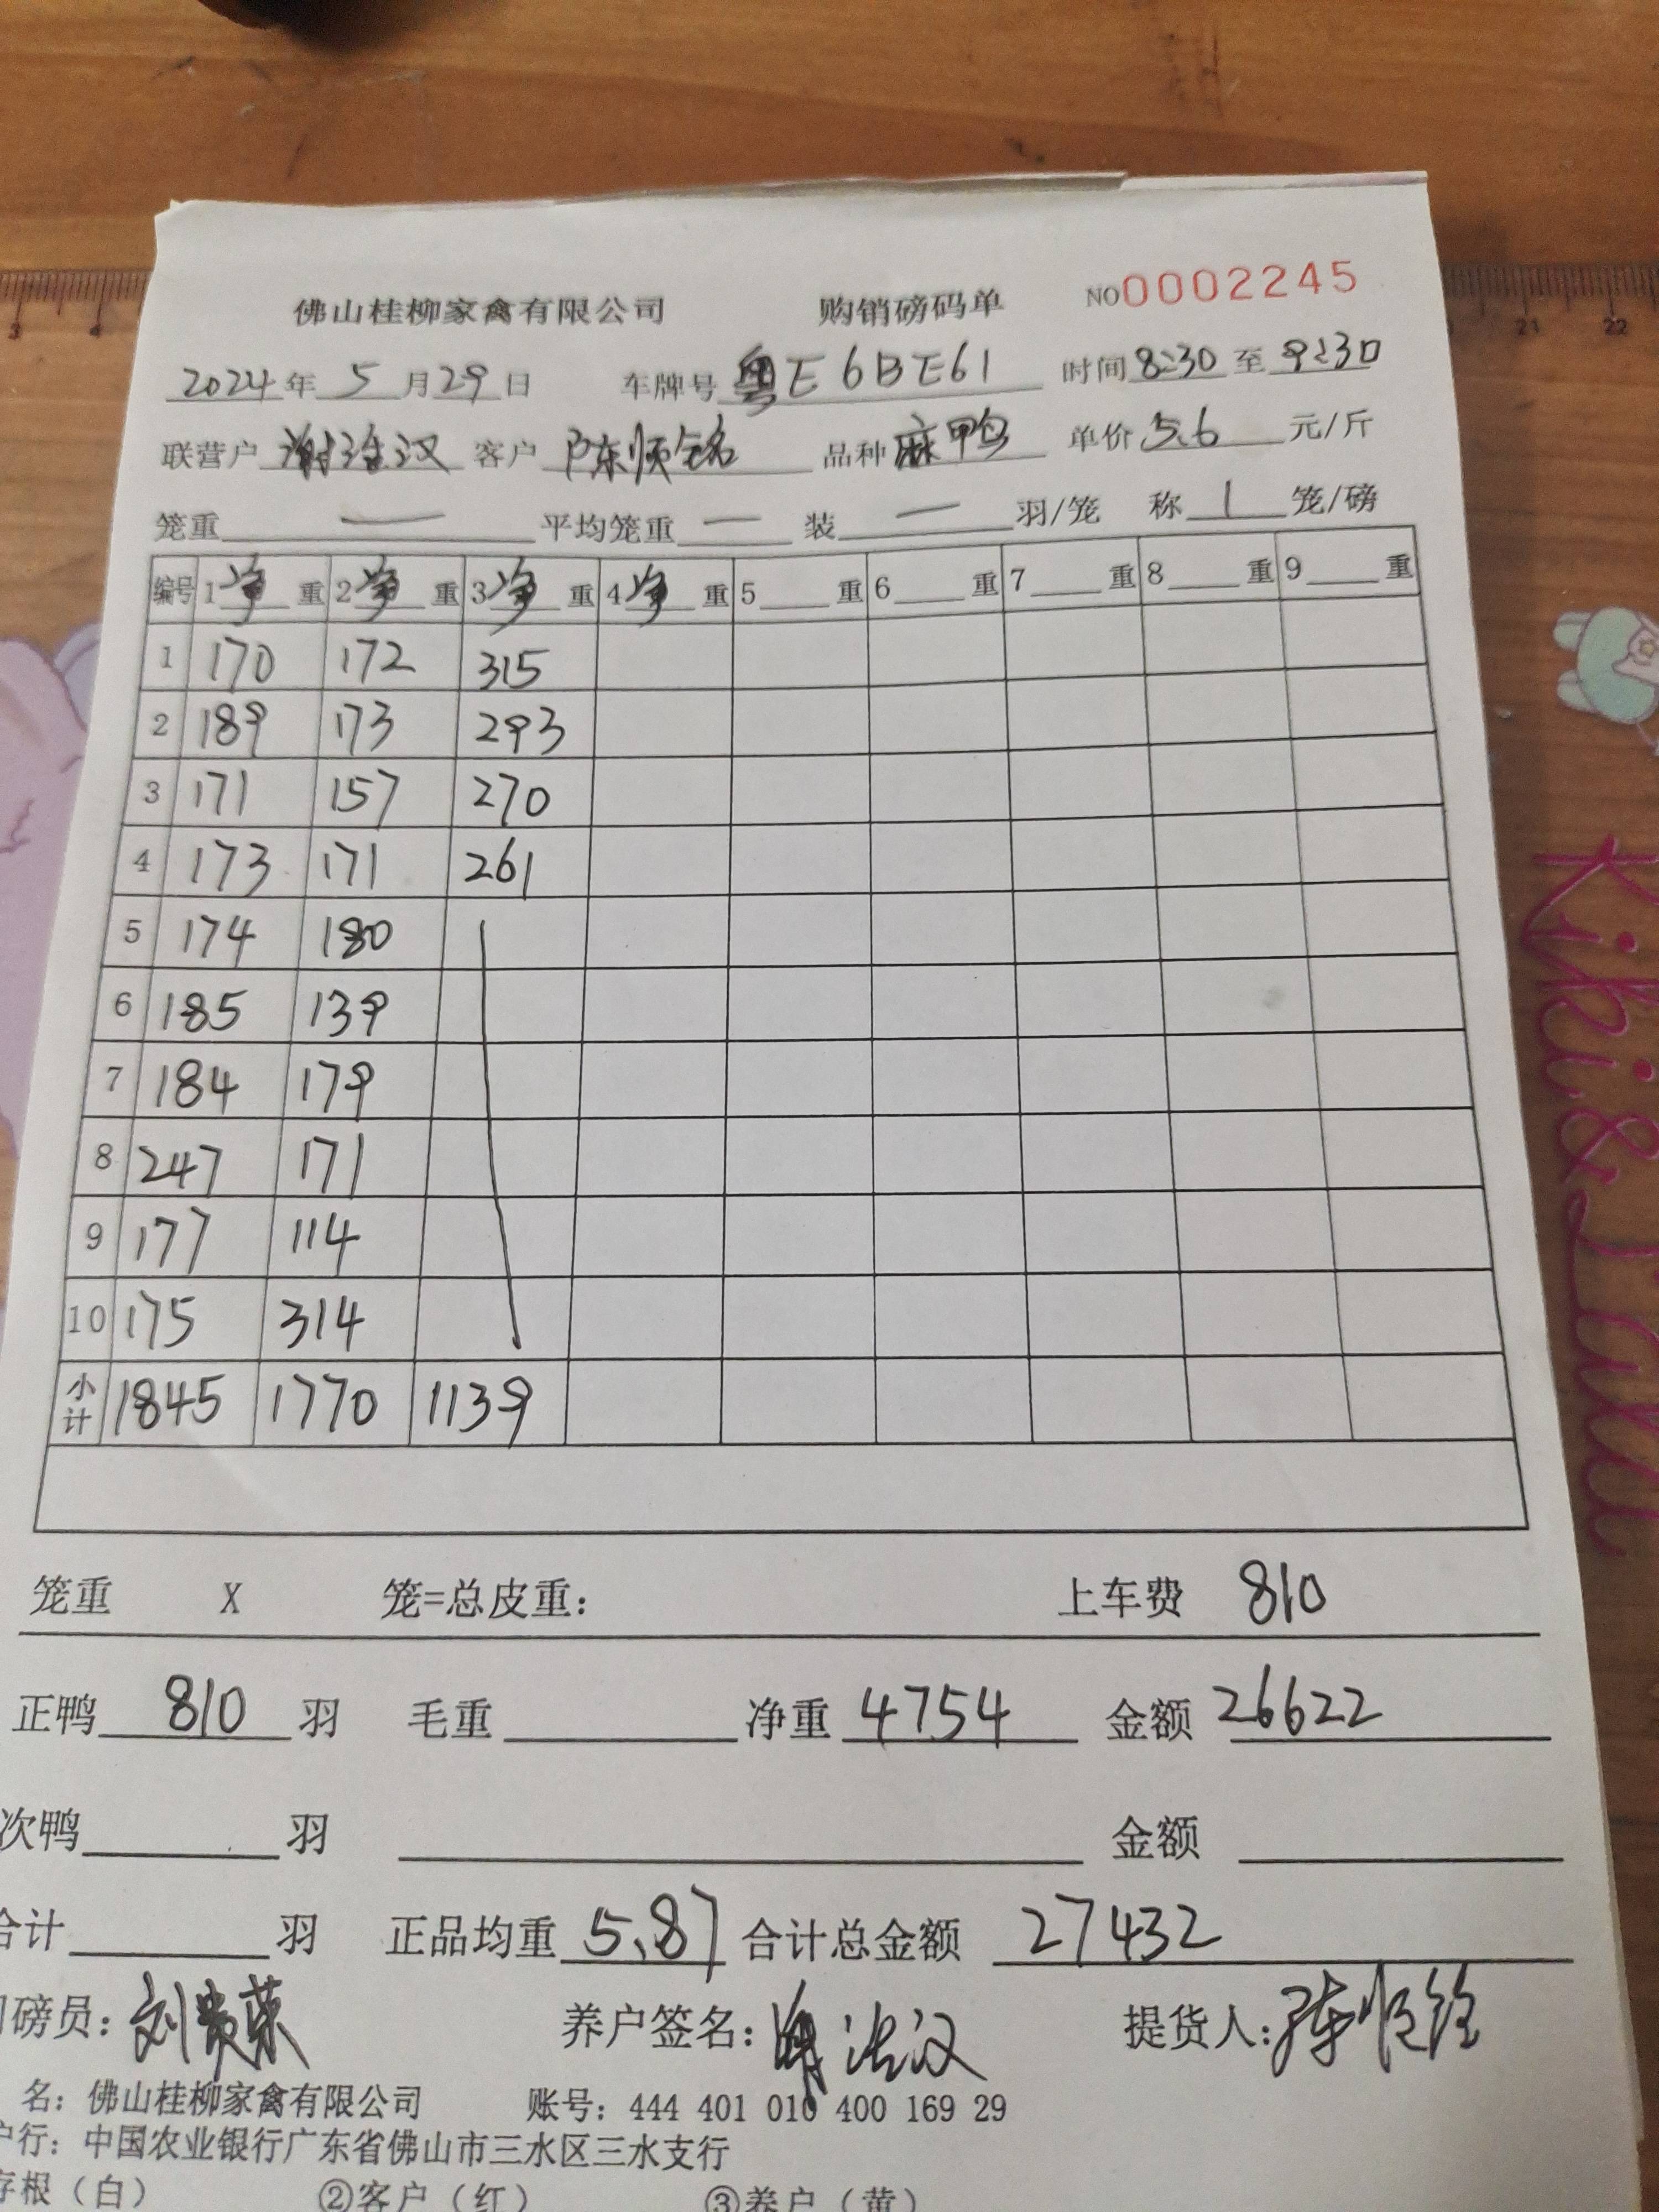 佛山桂柳家禽有限公司 购销磅码单 NO0002245
2024年5月29日 车牌号粤E6BE61 时间8:30至9:30
联营户谢 汉 客户陈顺铭 品种麻鸭 单价5.6元/斤
笼重— 平均笼重— 装—羽/笼 称1笼/磅
编号 1净重 2净重 3净重 4净重 5重 6重 7重 8重 9重
1 170 172 315
2 189 173 293
3 171 157 270
4 173 171 261
5 174 180
6 185 139
7 184 179
8 247 171
9 177 114
10 175 314
小计 1845 1770 1139
笼重 X 笼=总皮重: 上车费 810
正鸭810羽 毛重 净重4754 金额26622
次鸭 羽 金额
合计 羽 正品均重5.87 合计总金额27432
磅员:刘贵荣 养户签名: 汉 提货人:陈顺铭
名: 佛山桂柳家禽有限公司 账号: 444 401 010 400 169 29
户行: 中国农业银行广东省佛山市三水区三水支行
存根（白） ②客户（红） ③养户（黄）
Kiki&Lala
3 4 21 22